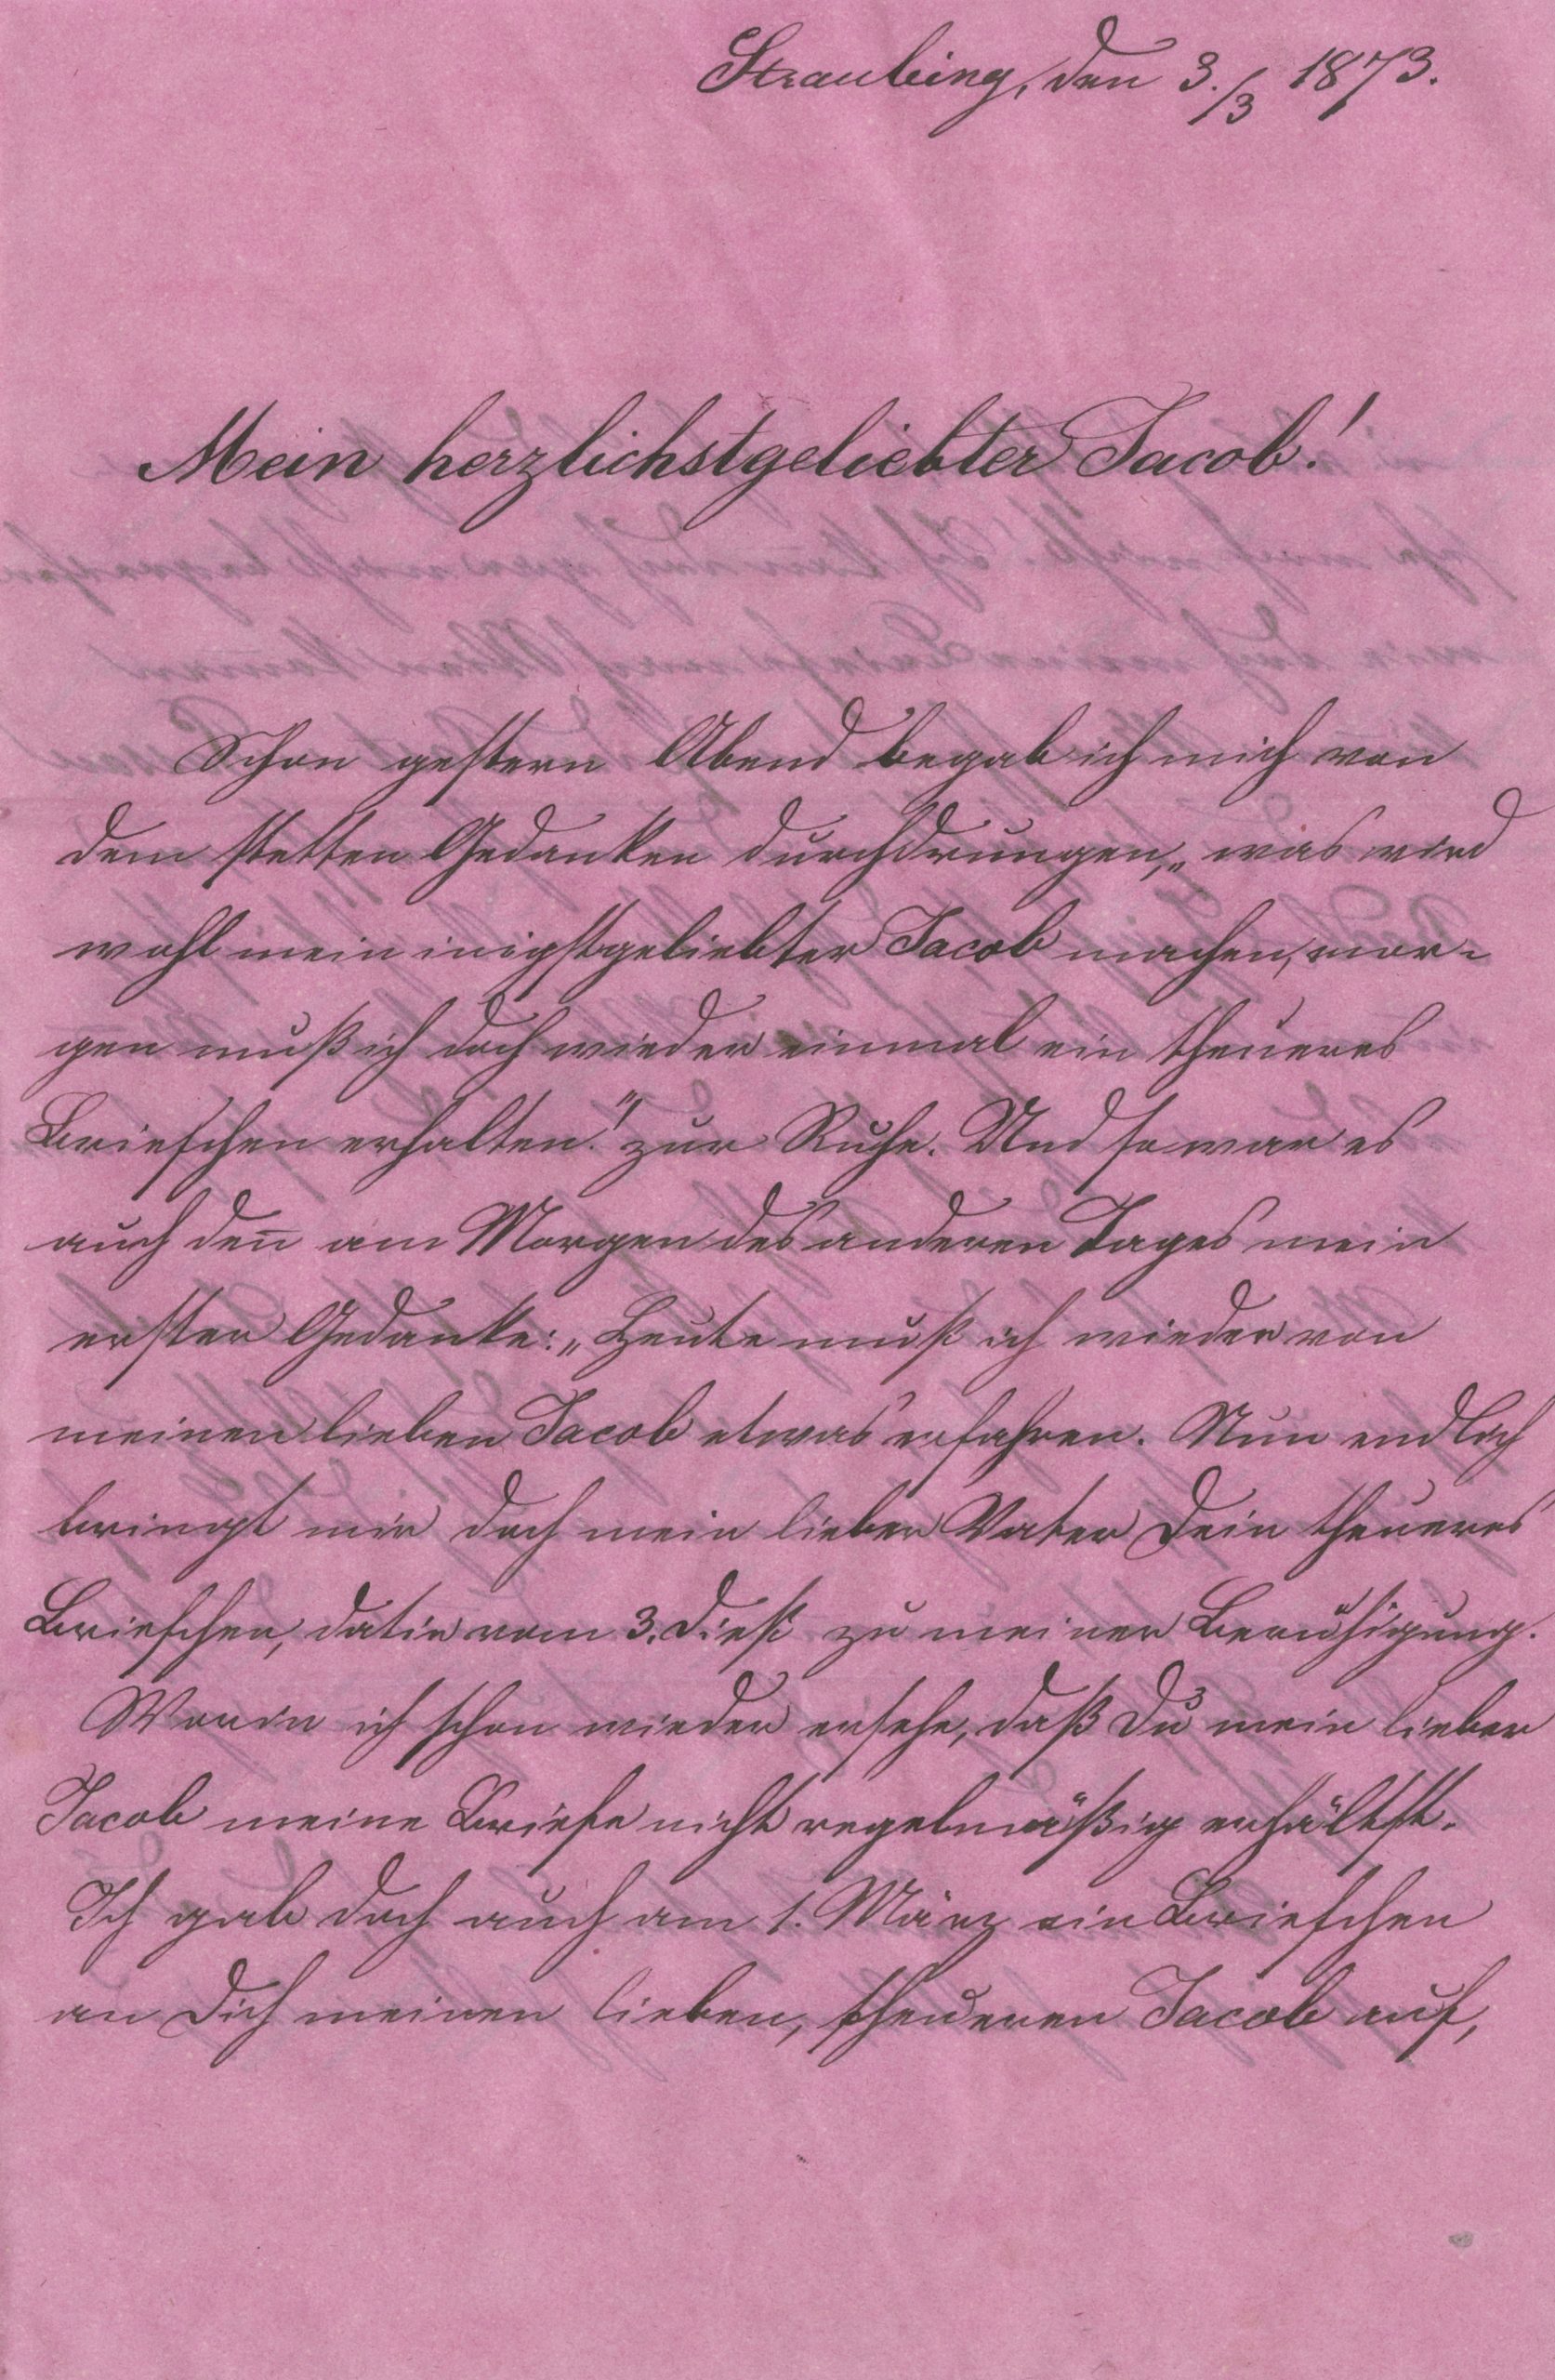 Straubing, den 3./3 1873.
Mein herzlichstgeliebter Jacob!
Schon gestern Abend begab ich mich von
dem stetten Gedanken durchdrungen, „was wird
wohl mein inigstgeliebter Jacob machen, mor-
gen muß ich doch wieder einmal ein theueres
Briefchen erhalten!" zur Ruhe. Und so war es
auch den̄ am Morgen des anderen Tages mein
erster Gedanke: „Heute muß ich wieder von
meinen lieben Jacob etwas erfahren. Nun endlich
bringt mir doch mein lieber Vater Dein theueres
Briefchen, datir vom 3. dieß zu meiner Beruhigung.
Worin ich schon wieder ersehe, daß Du mein lieber
Jacob meine Briefe nicht regelmäßig erhältst.
Ich gab doch auch am 1. März ein Briefchen
an Dich meinen lieben, theueren Jacob auf,